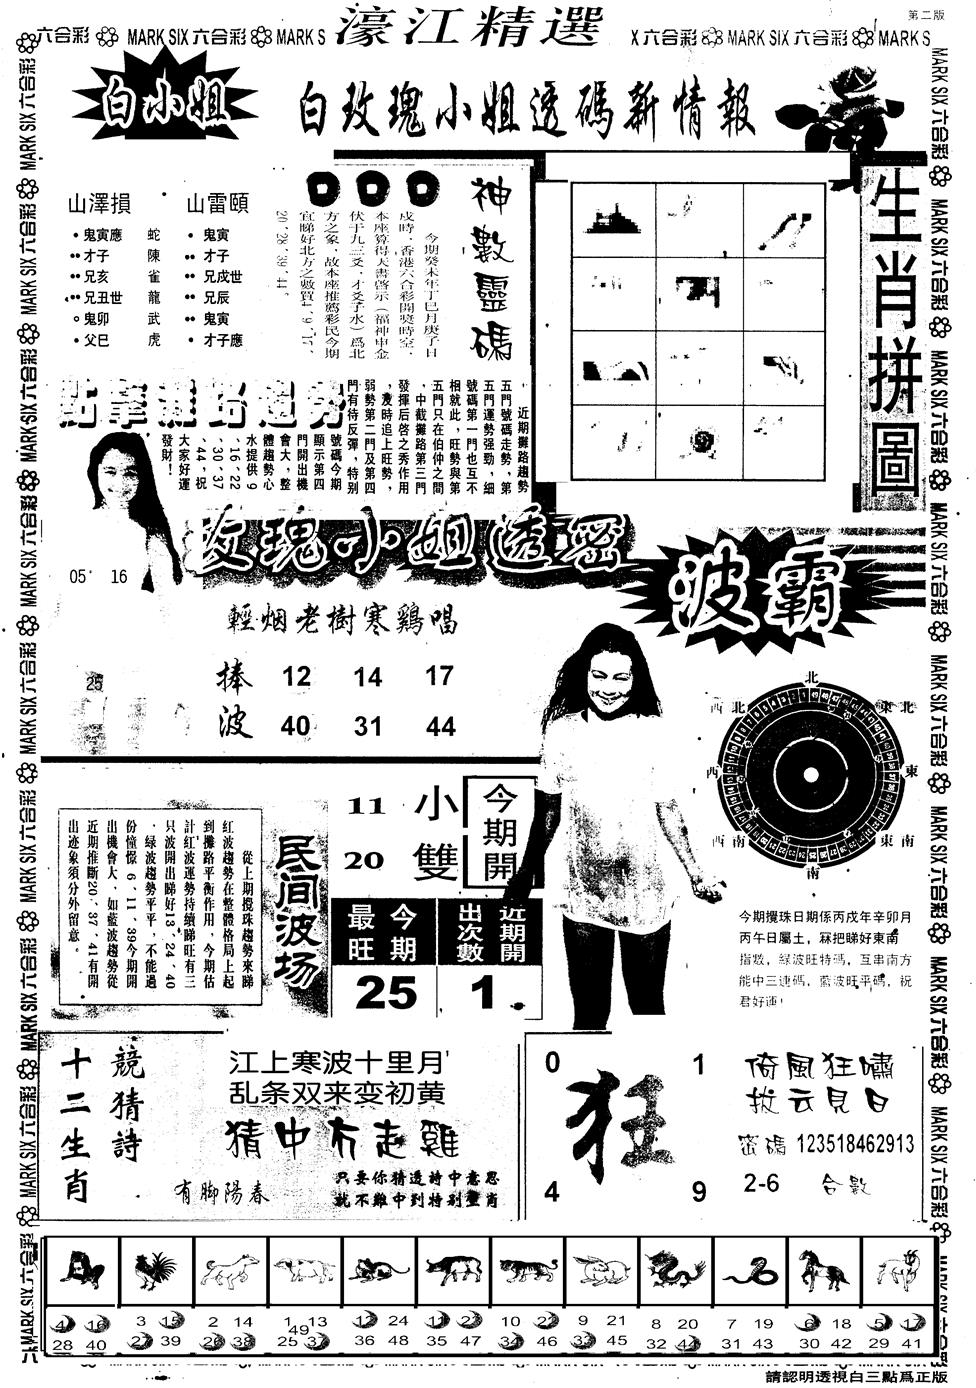 第二版
濠江精選
六合彩 MARK SIX 六合彩 MARK S
X 六合彩 MARK SIX 六合彩 MARK S
白小姐
白玫瑰小姐透碼新情報
山澤損
鬼寅應 蛇
才子 陳
兄亥 雀
兄丑世 龍
鬼卯 武
父巳 虎
山雷頤
鬼寅
兄戍世
兄辰
鬼寅
才子應
神數靈碼
今期癸未年丁巳月庚子日
戍時，香港六合彩開獎時空，
本座算得天書啓示（福神申金
伏于九三爻，才爻子水）爲北
方之象，故本座推薦彩民今期
宜睇好北方之數買4、9、17、
20、28、39、44。
生肖拼圖
點擊攤路趨勢
近期攤路趨勢
五門號碼走勢，第
五門運勢强勁，細
號碼第一門也互不
相就此，旺勢與第
五門只在伯仲之間
，中截攤路第三門
發揮后啓之秀作用
，凌時追上旺勢，
弱勢第二門及第四
門有待反彈，特别
號碼今期
顯示第四
門開出機
會大，整
體趨勢心
水提供9
、16、22
、30、37
、44，祝
大家好運
發財！
玫瑰小姐透密
05 16
25
輕烟老樹寒鷄唱
捧波
12 14 17
40 31 44
波霸
北
西北 東北
西 東
西南 東南
南
今期攪珠日期係丙戌年辛卯月
丙午日屬土，冧把睇好東南
指数，緑波旺特碼，互串南方
能中三連碼，藍波旺平碼，祝
君好運！
民间波场
從上期攪珠趨勢來睇
紅波趨勢在整體格局上起
到攤路平衡作用，今期估
計紅波運勢持續睇旺有三
只波開出睇好13、24、40
，緑波趨勢平平，不能過
份憧憬 6、11、39今期開
出機會大，如藍波趨勢從
近期推斷20、37、41有開
出迹象須分外留意。
今期開
小 11
雙 20
今期最旺
25
近期開出次數
1
競猜詩
十二生肖
江上寒波十里月
乱条双来变初黄
猜中冇走雞
有脚陽春
只要你猜透詩中意思
就不難中到特别生肖
0 1
狂
4 9
倚風狂嘯
拔云見日
密碼 123518462913
2-6 合數
4 16 28 40
3 15 27 39
2 14 26 38
1 13 25 37 49
12 24 36 48
11 23 35 47
10 22 34 46
9 21 33 45
8 20 32 44
7 19 31 43
6 18 30 42
5 17 29 41
請認明透視白三點爲正版